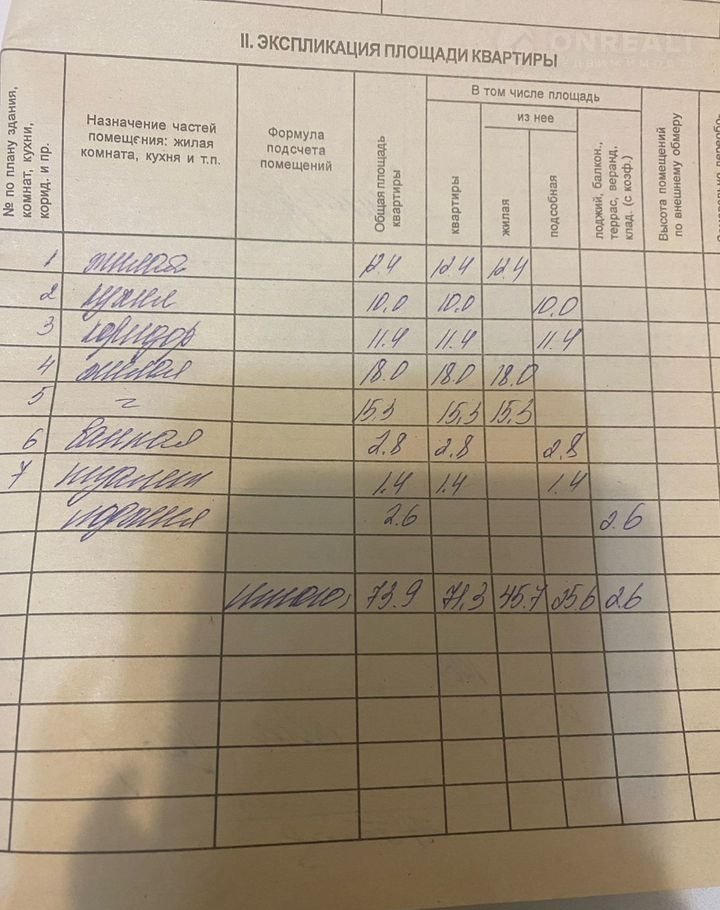 ONREALT
НЕДВИЖИМОСТЬ
II. ЭКСПЛИКАЦИЯ ПЛОЩАДИ КВАРТИРЫ
№ по плану здания, комнат, кухни, корид. и пр.
Назначение частей
помещения: жилая
комната, кухня и т.п.
Формула
подсчета
помещений
Общая площадь
квартиры
В том числе площадь
квартиры
из нее
жилая
подсобная
лоджий, балкон.,
террас, веранд,
клад. (с коэф.)
Высота помещений
по внешнему обмеру
1 жилая 12.4 12.4 12.4
2 кухня 10.0 10.0 10.0
3 коридор 11.4 11.4 11.4
4 жилая 18.0 18.0 18.0
5 15.3 15,3 15.3
6 ванная 2.8 2.8 2.8
7 туалет 1.4 1.4 1.4
лоджия 2.6 2.6
итого: 73.9 71,3 45.7 25.6 2.6